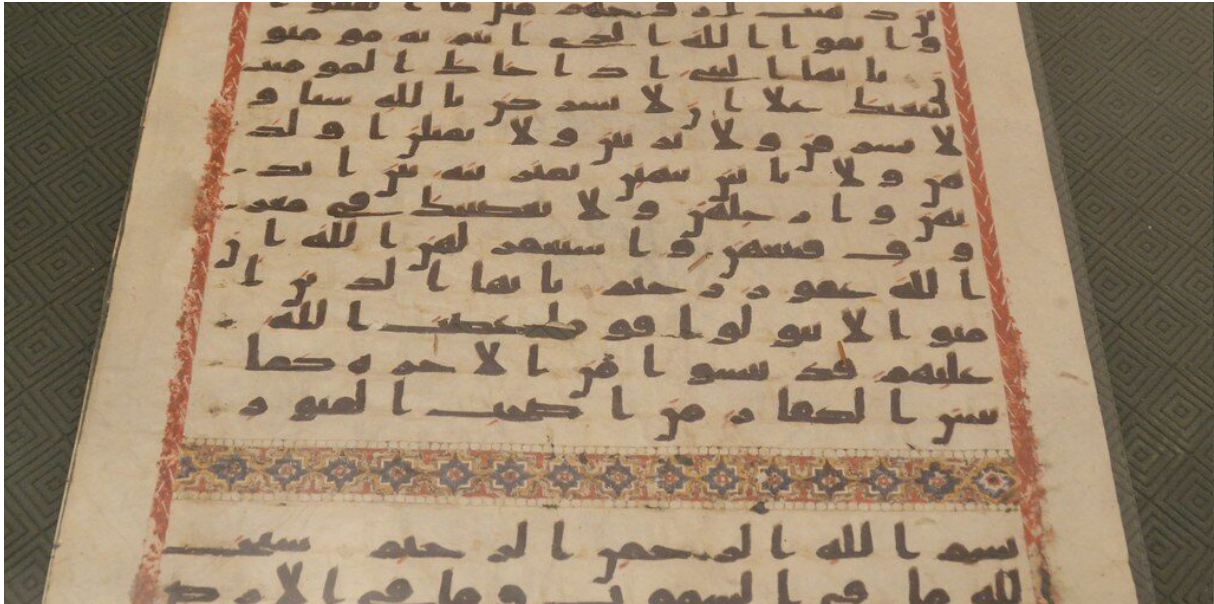 ين ذهبت ازوجهم مثل ما انفقوا
واتقوا الله الذي انتم به مومنو
ن يايها النبي اذا جاك المومنت
يبيعنك علا ان لا يشركن بالله شيا و
لا يسرقن ولا يزنين ولا يقتلن اولد
هن ولا ياتين ببهتن يفترينه بين ايد
يهن وارجلهن ولا يعصينك في معر
وف فبيعهن واستغفر لهن الله ان
الله غفور رحيم يايها الذين ا
منوا لا تتولوا قوما غضب الله
عليهم قد يئسوا من الاخرة كما
يئس الكفار من اصحب القبور
بسم الله الرحمن الرحيم سبح
لله ما في السموت وما في الارض